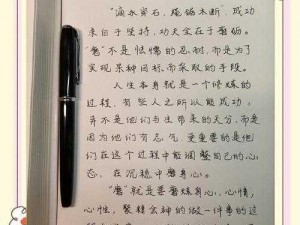 “滴水穿石，绳锯木断，成功
来自于坚持，功夫全在于磨砺。
“磨”不是怯懦的忍耐，而是为了
实现某种目标而采取的手段。
人生本身就是一个修炼的
过程，有些人之所以能成功，
并不是他们与生带来的天分，而是
因为他们有志气，更重要的是他
们在这个过程中能调整自己的心
态，在沉稳中磨身心。
“磨”就是要磨炼身心，心情，
心性，聚精会神的做一件事的过